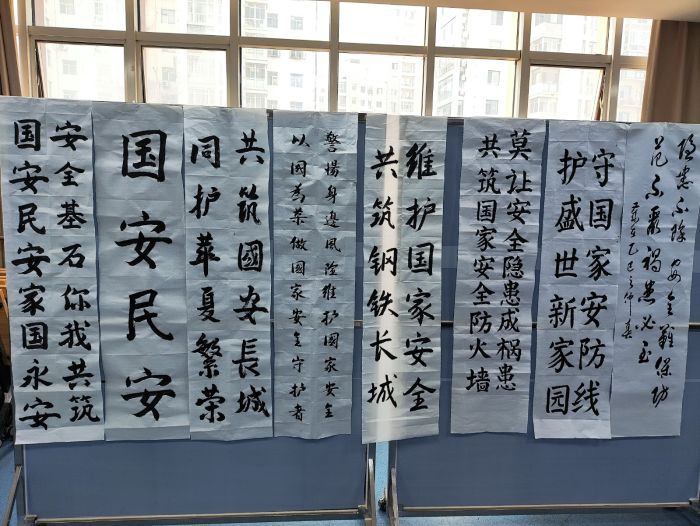 安全基石你我共筑
国安民安家国永安
国安民安
共筑國安長城
同护華夏繁荣
警惕身邊風险维护國家安全
以国為荣做國家安全守护者
维护国家安全
共筑钢铁长城
莫让安全隐患成祸患
共筑国家安全防火墙
守国家安防线
护盛世新家园
隐患不除安全難保防
范不嚴祸患必至
乙巳之仲春